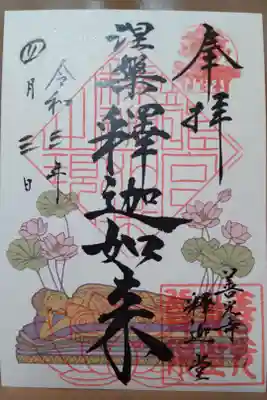 奉拝
涅槃釋迦如来
善光寺
釋迦堂
令和三年
四月三日